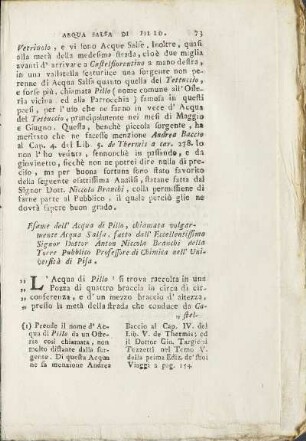 ACQUA SALSA DI PILLO. 73
Vetrinolo, e vi sono Acque Salse. Inoltre, quasi
alla metà della medesima strada, cioè due miglia
avanti d'arrivare a Castelfiorentino a mano destra,
in una vallatella scaturisce una sorgente non pe-
renne di Acqua Salsa quanto quella del Tettuccio,
e forse più, chiamata Pillo (nome comune all'Oste-
ria vicina, ed alla Parrocchia) famosa in questi
paesi, per l'uso che ne fanno in vece d'Acqua
del Tettuccio, principalmente nei mesi di Maggio
e Giugno. Questa, benchè piccola sorgente, ha
meritato che ne facesse menzione Andrea Baccio
al Cap. 4. del Lib. 5. de Thermis a car. 278. Io
non l'ho veduta, sennonchè in passando, e da
giovinetto, sicchè non ne potrei dire nulla di pre-
ciso, ma per buona fortuna sono stato favorito
della seguente esattissima Analisi, statane fatta dal
Signor Dott. Niccolò Branchi, colla permissione di
farne parte al Pubblico, il quale perciò glie ne
dovrà sapere buon grado.
Esame dell'Acqua di Pillo, chiamata volgar-
mente Acqua Salsa, fatto dall'Eccellentissimo
Signor Dottor Anton Niccolò Branchi della
Torre Pubblico Professore di Chimica nell'Uni-
versità di Pisa.
L'Acqua di Pillo si trova raccolta in una
Pozza di quattro braccia in circa di cir-
conferenza, e d'un mezzo braccio d'altezza,
presso la metà della strada che conduce da Ca-
stel-
(1) Prende il nome d'Ac-
qua di Pillo da un Oste-
ria così chiamata, non
molto distante dalla sor-
gente. Di questa Acqua
ne fa menzione Andrea
Baccio al Cap. IV. del
Lib. V. de Thermis; ed
il Dottor Gio. Targioni
Tozzetti nel Tomo V.
dalla prima Ediz. de' suoi
Viaggi a pag. 154